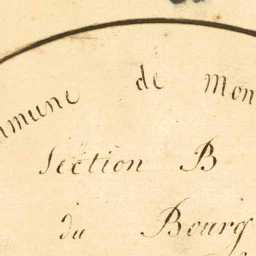 mmune de Mon
Section B
du Bourg